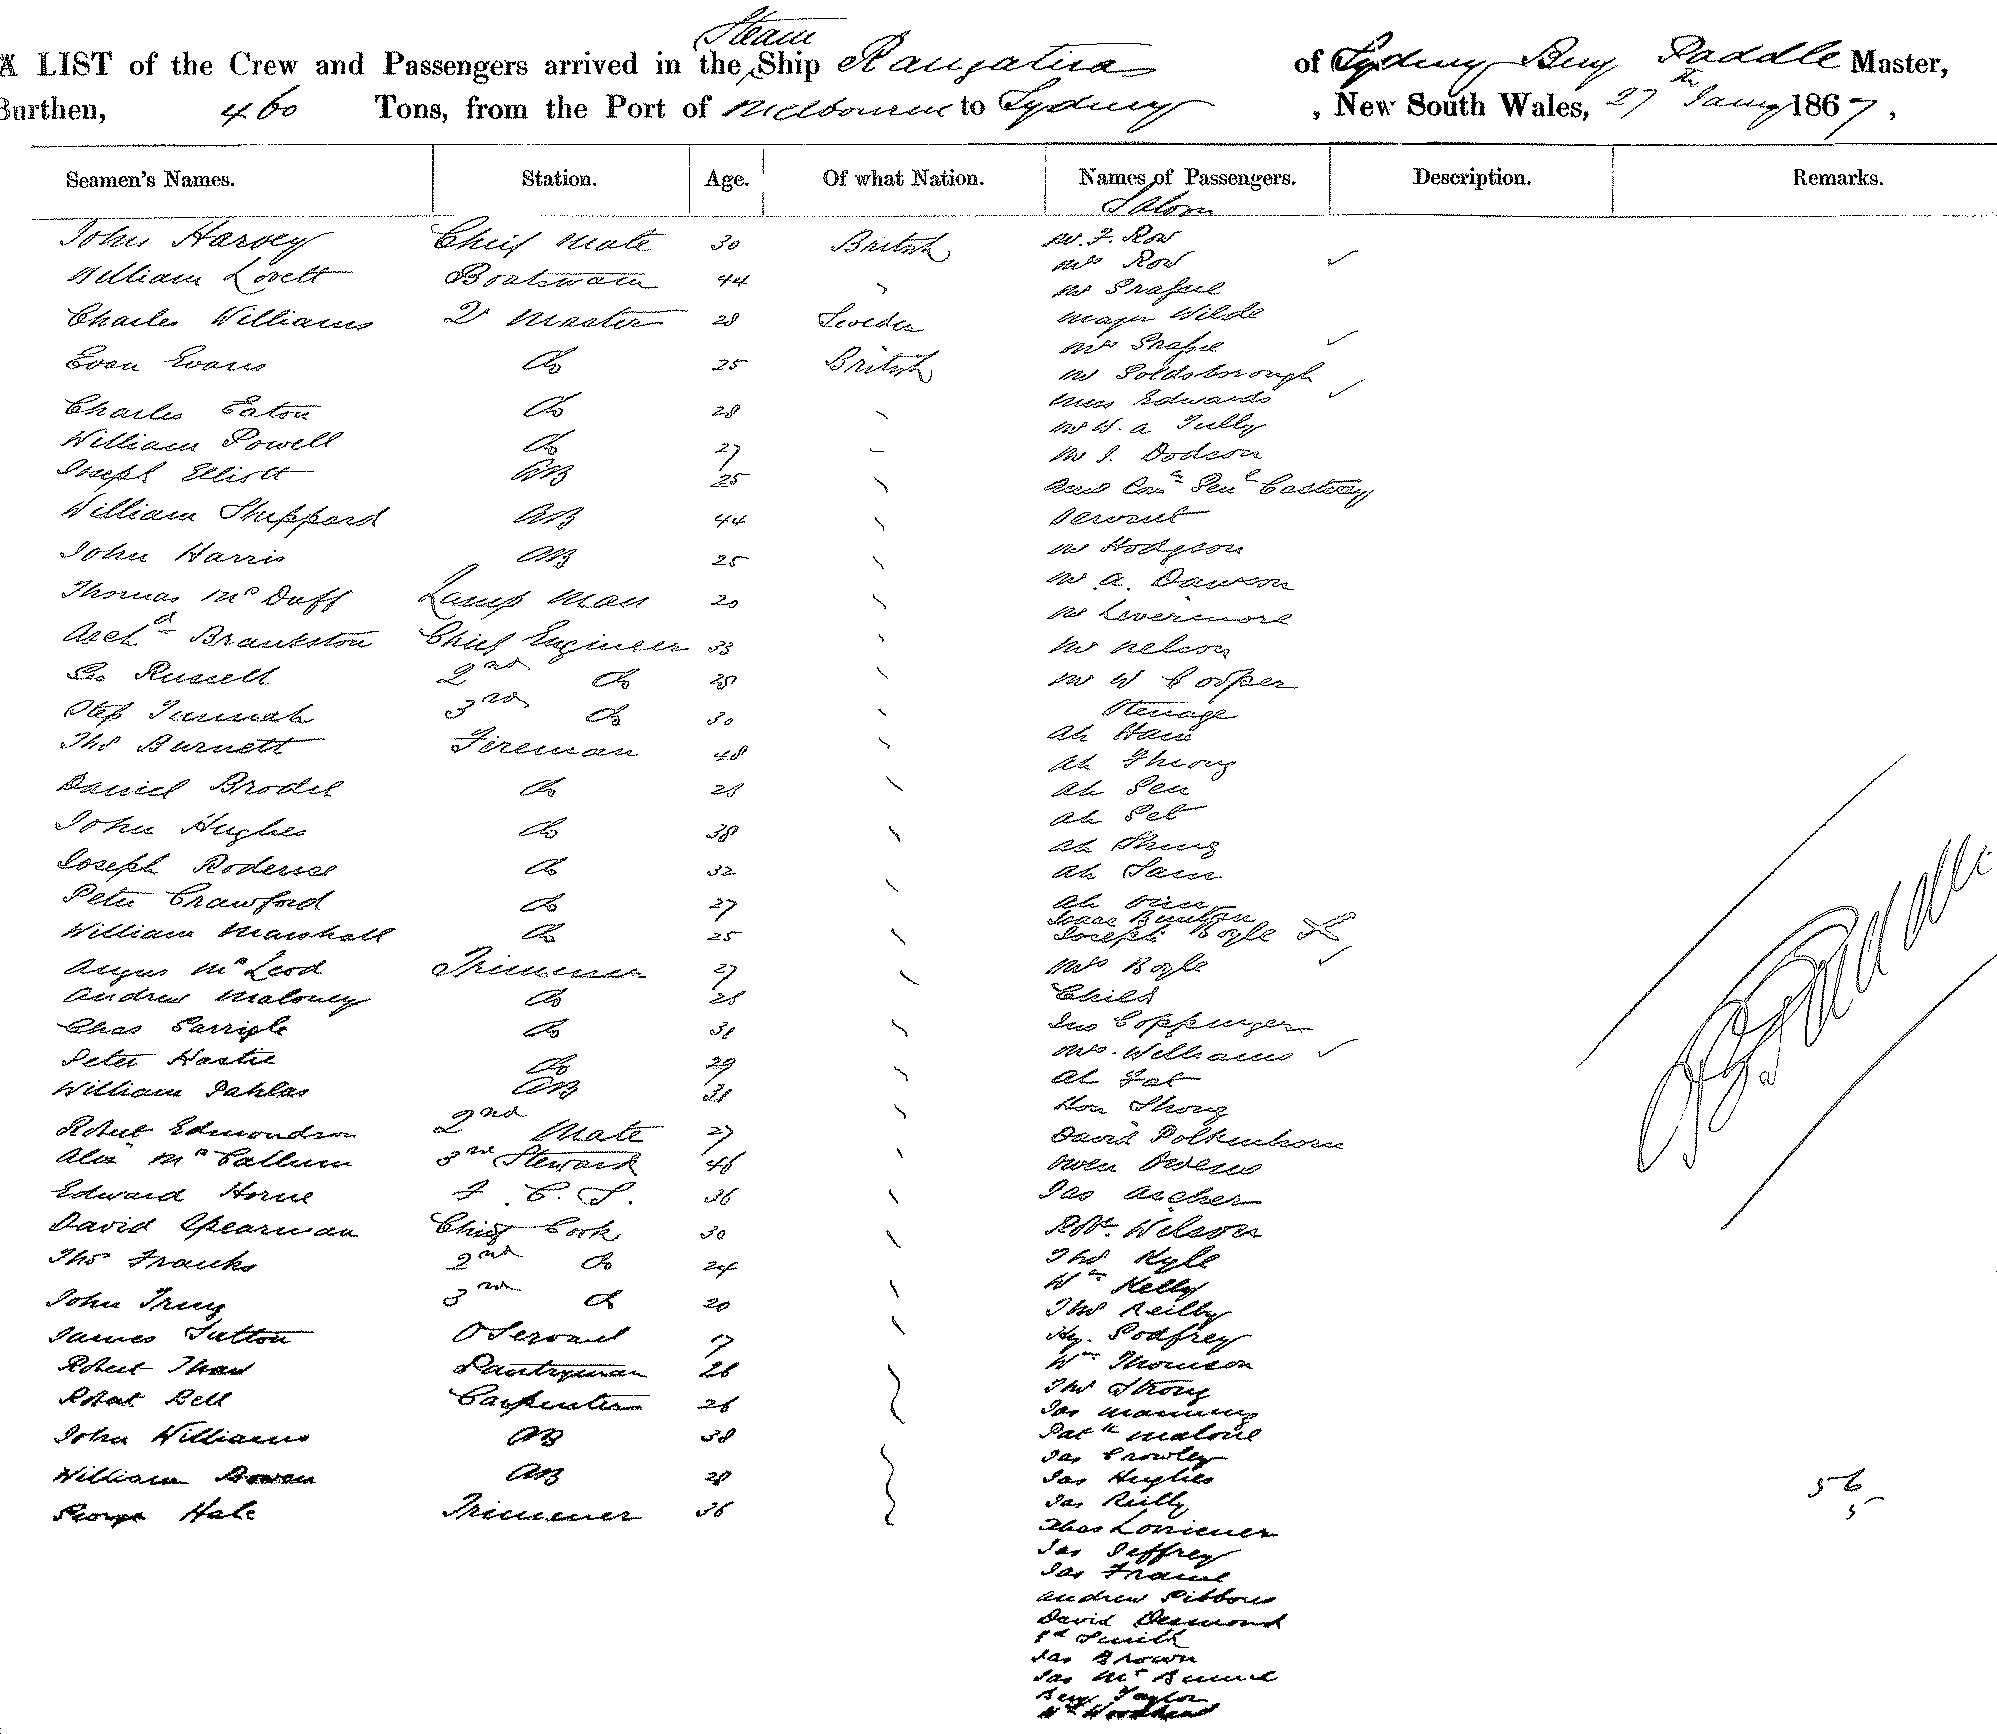 Steam
A LIST of the Crew and Passengers arrived in the Ship Rangatira of Sydney Benj Paddle Master,
Burthen, 460 Tons, from the Port of Melbourne to Sydney, New South Wales, 27th Jany 1867,
Seamen's Names. Station. Age. Of what Nation. Names of Passengers. Description. Remarks.
Saloon
John Harvey Chief Mate 30 British
William Lovett Boatswain 44 "
Charles Williams Q Master 28 Sweden
Evan Evans Do 25 British
Charles Eaton Do 28 "
William Powell Do 27 "
Joseph Elliott AB 25 "
William Sheppard AB 44 "
John Harris AB 25 "
Thomas McDuff Lamp Man 20 "
Archd Brankston Chief Engineer 33 "
Geo Russell 2nd Do 28 "
Step Tunnah 3rd Do 30 "
Thos Burnett Fireman 48 "
Daniel Brodie Do 28 "
John Hughes Do 38 "
Joseph Do 32 "
Peter Crawford Do 27 "
William Marshall Do 25 "
Angus McLeod Trimmer 27 "
Andrew Maloney Do 28 "
Chas Do 31 "
Peter Hastie Do 29 "
William AB 31 "
Robert Edmondson 2nd Mate 27 "
Alex McCallum 3rd Steward 46 "
Edward Horne F. C. S. 36 "
David Spearman Chief Cook 30 "
Thos Franks 2nd Do 24 "
John 3rd Do 20 "
James Sutton 17 "
Robert Pantryman 26
Robert Bell Carpenter 26
John Williams AB 38
William Bowen AB 28
George Hale Trimmer 36
Mr. F. Row
Mrs Row
Mr
Major Wilde
Mrs
Mr Goldsborough
Miss Edwards
Mr W. A Tully
Mr J. Dodson
Servant
Mr Hodgson
Mr A. Dawson
Mr Levermore
Mr Nelson
Mr W Cooper
Steerage
Ah Ham
Ah
Ah Sen
Ah
Ah
Ah Sam
Ah
Isaac
Joseph Boyle
Mrs Boyle
Child
Jno Coppinger
Mrs. Williams
Ah Fat
Hon
David Polkinhorn
Owen Owens
Jas Archer
Robt. Wilson
Thos Kyle
Wm Kelly
Thos Reilly
Hy. Godfrey
Wm Thomson
Thos Strong
Jas Manning
Patk Malone
Jas Crowley
Jas Hughes
Jas Reilly
Chas Lorrimer
Jas Jeffrey
Jas Frame
Andrew Gibbons
David Desmond
Smith
Jas Brown
Jas
Benj Taylor
Wm
B Paddle
56
5